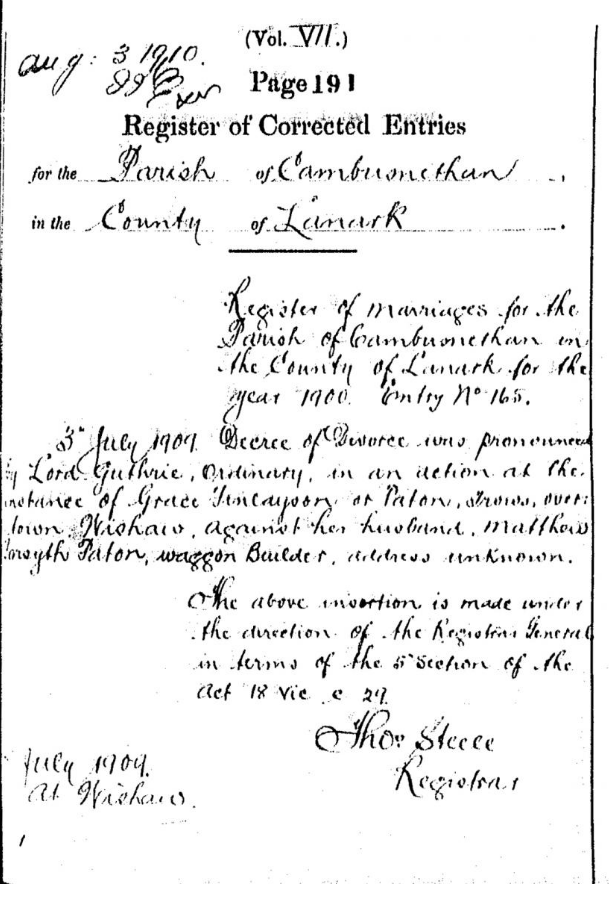 (Vol. VII.)
Aug: 3 1910.
Page 191
Register of Corrected Entries
for the Parish of Cambusnethan.
in the County of Lanark.
Register of Marriages for the
Parish of Cambusnethan in
the County of Lanark for the
year 1900. Entry No 165.
3d July 1909. Decree of Divorce was pronounced
by Lord Guthrie, Ordinary, in an action at the
instance of Grace Finlayson or Paton, Over-
town Wishaw, against her husband, Matthew
Forsyth Paton, Waggon Builder, address unknown.
The above insertion is made under
the direction of the Registrar General
in terms of the 5th Section of the
Act 18 Vic c 29
Thos Steele
Registrar
July 1909.
At Wishaw.